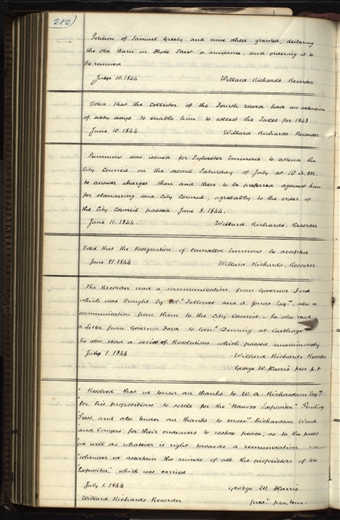 212)
Petition of Samuel Gresley and nine others, granted, declaring
the old Barn on Hyde Street a nuisance, and ordering it to
be removed
June 10. 1844 Willard Richards. Recorder
Voted that the collector of the Fourth ward have an extension
of sixty days to enable him to collect the Taxes for 1843
June 10. 1844 Willard Richards Recorder
Summons was issued for Sylvester Emmons to attend the
City Council on the second Saturday of July at 10 A.M.
to answer charges then and there to be preferred against him
for slandering said City Council, agreeably to the order of
the City Council passed June 8. 1844.
June 11. 1844 Willard Richards. Recorder
Voted that the Resignation of Councillor Emmons be accepted
June 21. 1844 Willard Richards, Recorder
The Recorder read a communication from Governor Ford
which was brought by Col. Fellows and A. Jonas Esqr. also a
communication from them to the City Council: he also read
a Letter from Governor Ford to Genl. Deming at Carthage
he also read a series of Resolutions which passed unanimously
July 1. 1844 Willard Richards Recorder
George W. Harris pres. p.t
"Resolved that we tender our thanks to W. A. Richardson Esqr.
for his propositions to settle for the "Nauvoo Expositor" Printing
Press, and also tender our thanks to messrs Richardson, Bond
and Conyers for their endeavors to restore peace; as to the press
we will do whatever is right towards a remuneration
whenever we ascertain the minds of all the proprietors of the
Expositor," which was carried
July 1. 1844 George W. Harris
Willard Richards Recorder pres. pro. tem.